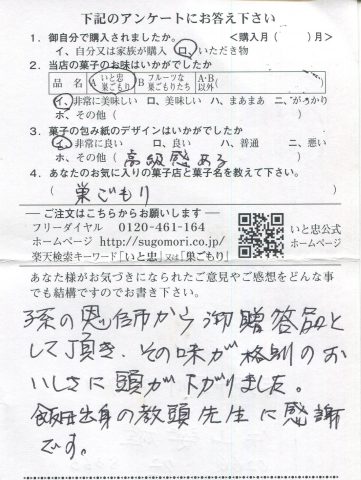 下記のアンケートにお答え下さい
1. 御自分で購入されましたか。　<購入月（　　）月>
イ、自分又は家族が購入　ロ、いただき物
2. 当店の菓子のお味はいかがでしたか
品　名　A いと忠 巣ごもり　B フルーツな 巣ごもりたち　A・B 以外（　　　）
イ、非常に美味しい　ロ、美味しい　ハ、まあまあ　ニ、がっかり
ホ、その他（　　　）
3. 菓子の包み紙のデザインはいかがでしたか
イ、非常に良い　ロ、良い　ハ、普通　ニ、悪い
ホ、その他（　高級感ある　）
4. あなたのお気に入りの菓子店と菓子名を教えて下さい。
（　巣ごもり　）
ご注文はこちらからお願いします
フリーダイヤル　0120-461-164
ホームページ　http://sugomori.co.jp/
楽天検索キーワード「いと忠」又は「巣ごもり」
いと忠公式
ホームページ
あなた様がお気づきになられたご意見やご感想をどんな事
でも結構ですのでお書き下さい。
孫の恩師から御贈答品と
して頂き、その味が格別のお
いしさに頭が下がりました。
飯田出身の教頭先生に感謝
です。